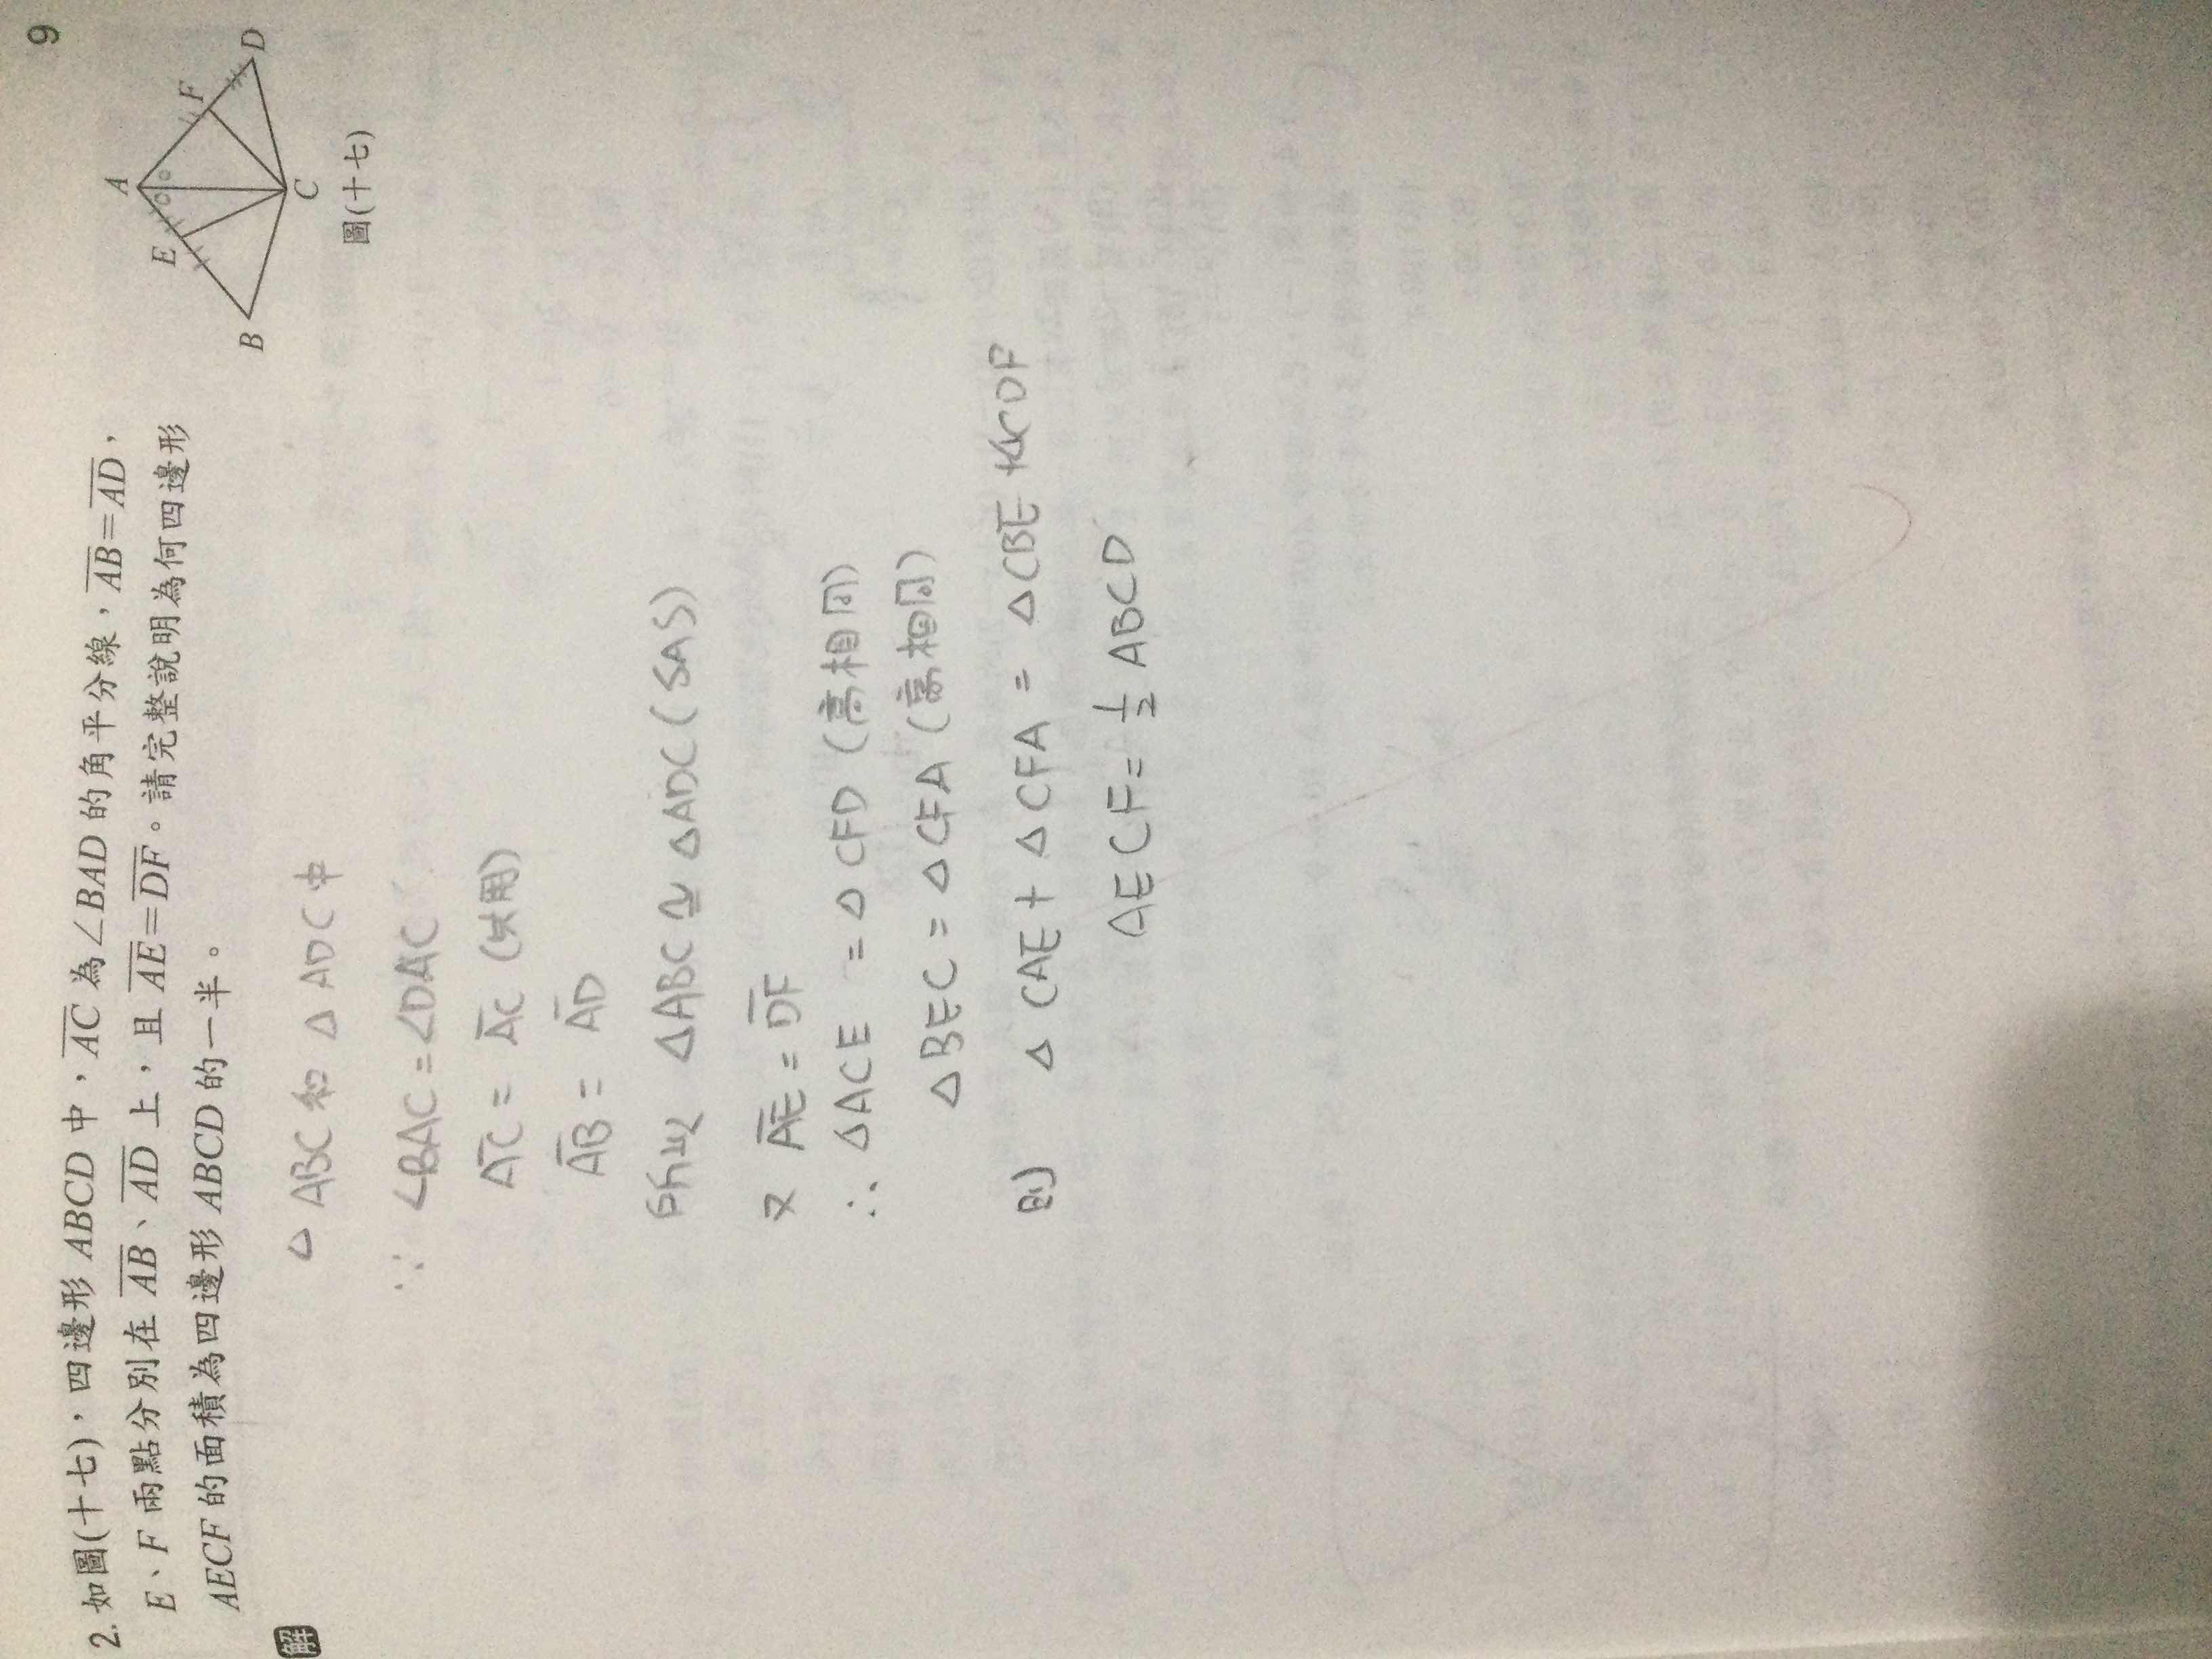 9
2. 如圖(十七)，四邊形 ABCD 中，AC 為∠BAD 的角平分線，AB=AD，
E、F 兩點分別在 AB、AD 上，且 AE=DF。請完整說明為何四邊形
AECF 的面積為四邊形 ABCD 的一半。
A
E
F
B
D
C
圖(十七)
解
△ABC和△ADC中
∵ ∠BAC=∠DAC
AC = AC (共用)
AB = AD
所以 △ABC≅△ADC(SAS)
又 AE=DF
∴ △ACE = △CFD (高相同)
△BEC = △CFA (高相同)
則 △CAE + △CFA = △CBE + △CDF
AECF = 1/2 ABCD